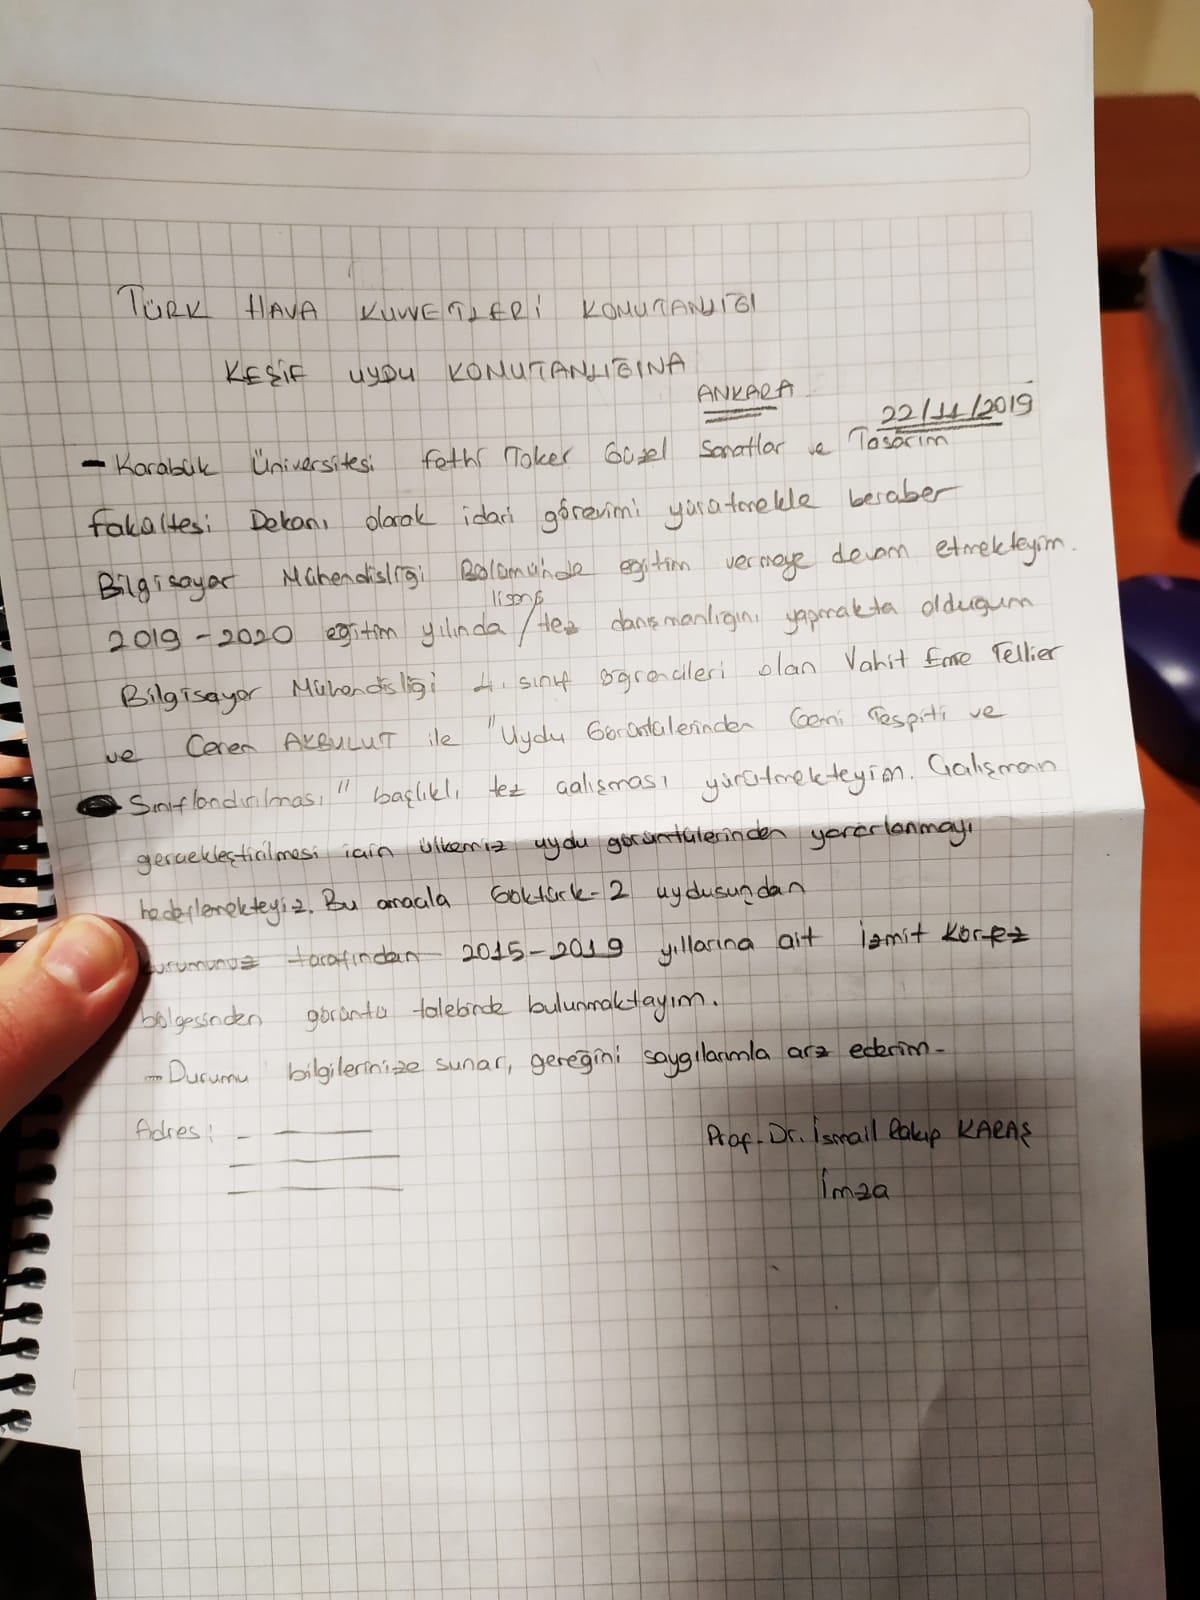 TÜRK HAVA KUVVETLERİ KOMUTANLIĞI
KEŞİF UYDU KOMUTANLIĞINA
ANKARA
22/11/2019
- Karabük Üniversitesi Fethi Toker Güzel Sanatlar ve Tasarım
Fakültesi Dekanı olarak idari görevimi yürütmekle beraber
Bilgisayar Mühendisliği Bölümünde eğitim vermeye devam etmekteyim.
lisans
2019-2020 eğitim yılında / tez danışmanlığını yapmakta olduğum
Bilgisayar Mühendisliği 4. sınıf öğrencileri olan Vahit Emre Tellier
ve Ceren AKBULUT ile "Uydu Görüntülerinden Gemi Tespiti ve
Sınıflandırılması" başlıklı tez çalışması yürütmekteyim. Çalışman
gerçekleştirilmesi için ülkemiz uydu görüntülerinden yararlanmayı
hedeflemekteyiz. Bu amaçla Göktürk-2 uydusundan
kurumunuz tarafından 2015-2019 yıllarına ait İzmit Körfez
bölgesinden görüntü talebinde bulunmaktayım.
- Durumu bilgilerinize sunar, gereğini saygılarımla arz ederim.
Adres:
Prof. Dr. İsmail Rakıp KARAŞ
İmza